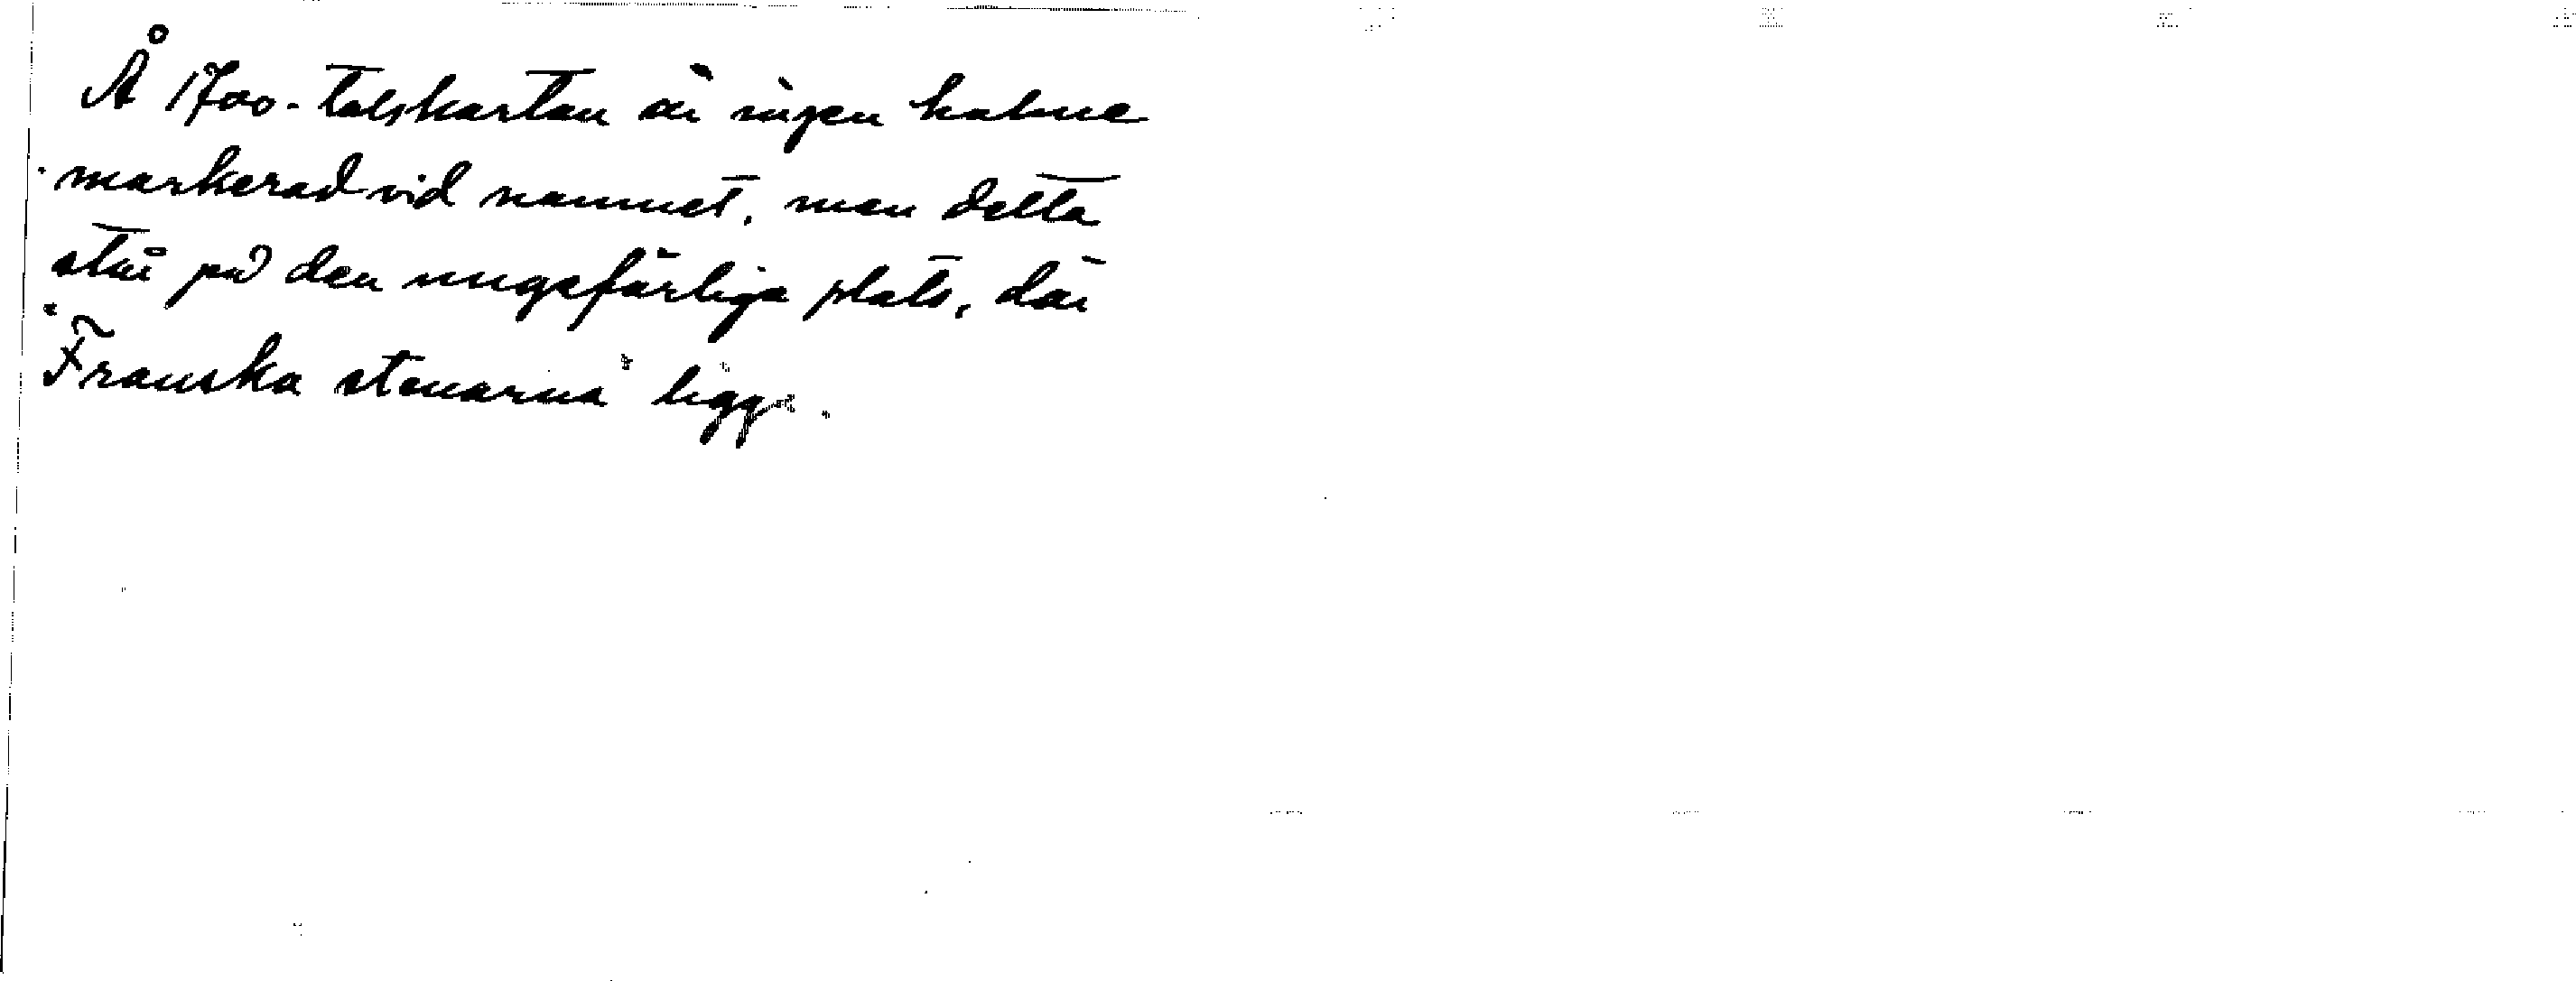 Å 1700-talskartan är ingen holme
markerad vid namnet, men detta
står på den ungefärliga plats, där
Franska stenarna ligga.